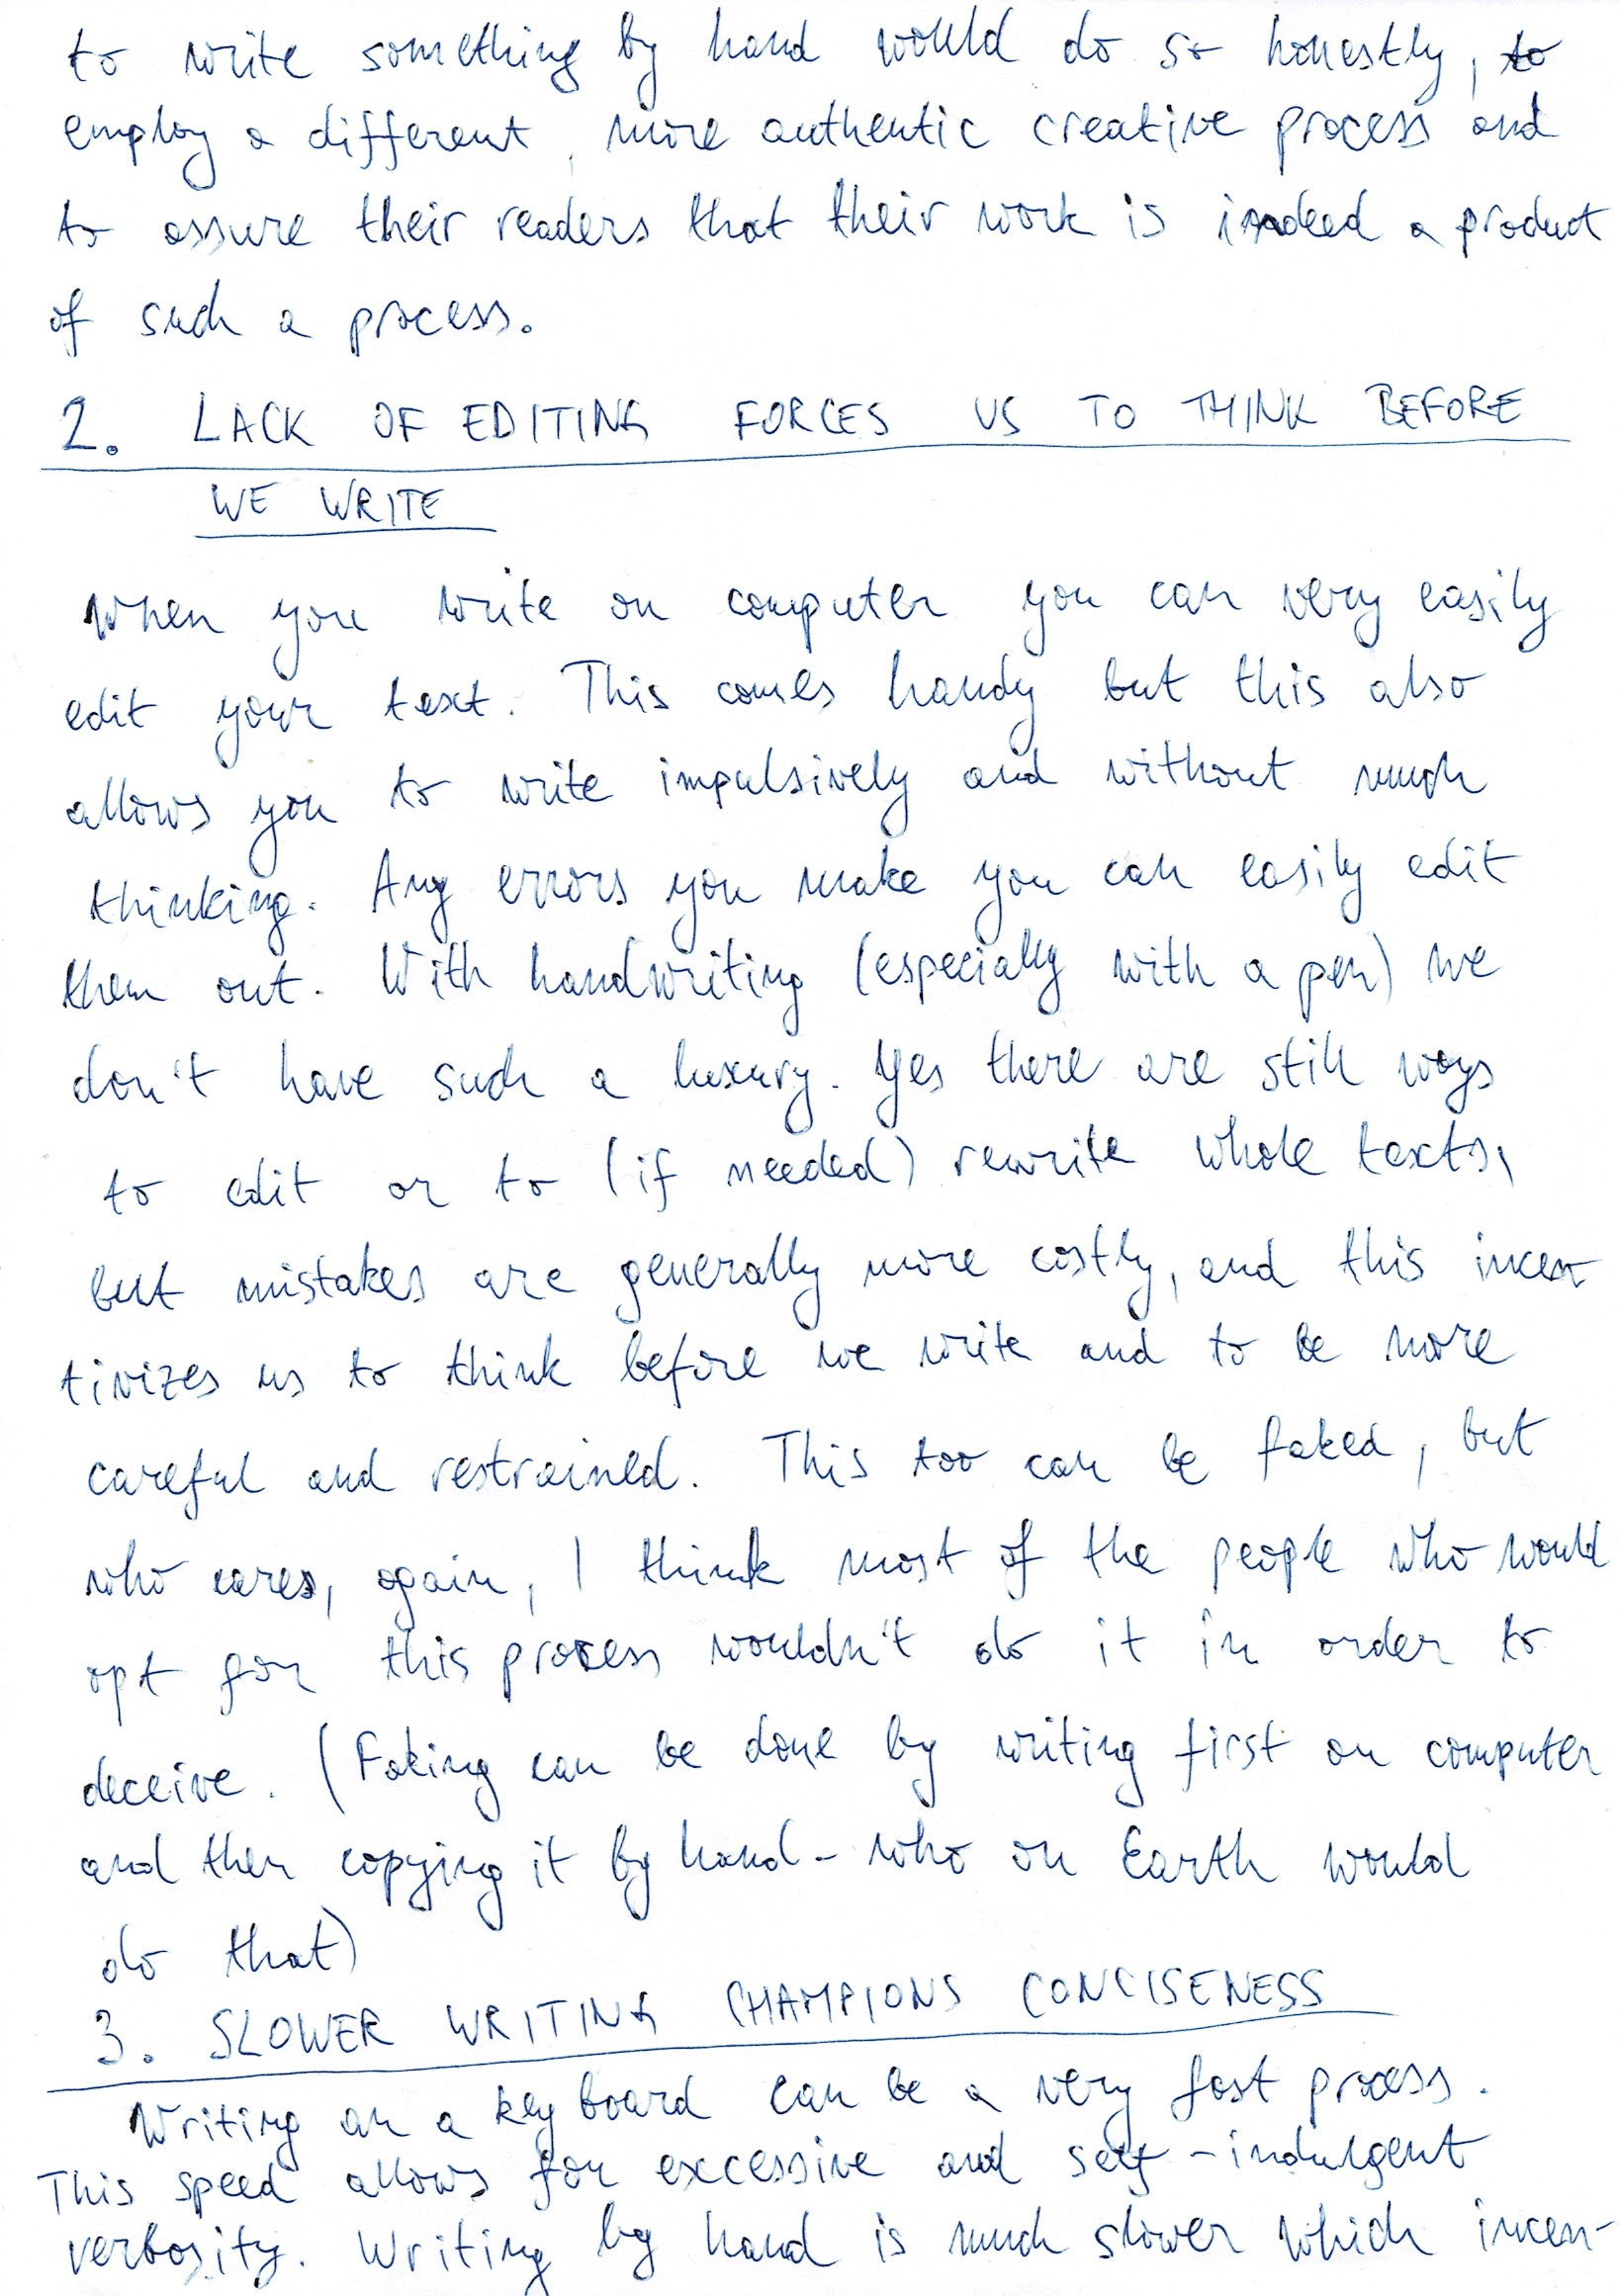 to write something by hand would do so honestly, to
employ a different, more authentic creative process and
to assure their readers that their work is indeed a product
of such a process.
2. LACK OF EDITING FORCES US TO THINK BEFORE
WE WRITE
When you write on computer you can very easily
edit your text. This comes handy but this also
allows you to write impulsively and without much
thinking. Any errors you make you can easily edit
them out. With handwriting (especially with a pen) we
don't have such a luxury. Yes there are still ways
to edit or to (if needed) rewrite whole texts,
but mistakes are generally more costly, and this incen-
tivizes us to think before we write and to be more
careful and restrained. This too can be faked, but
who cares, again, I think most of the people who would
opt for this process wouldn't do it in order to
deceive. (Faking can be done by writing first on computer
and then copying it by hand - who on Earth would
do that)
3. SLOWER WRITING CHAMPIONS CONCISENESS
Writing on a keyboard can be a very fast process.
This speed allows for excessive and self-indulgent
verbosity. Writing by hand is much slower which incen-